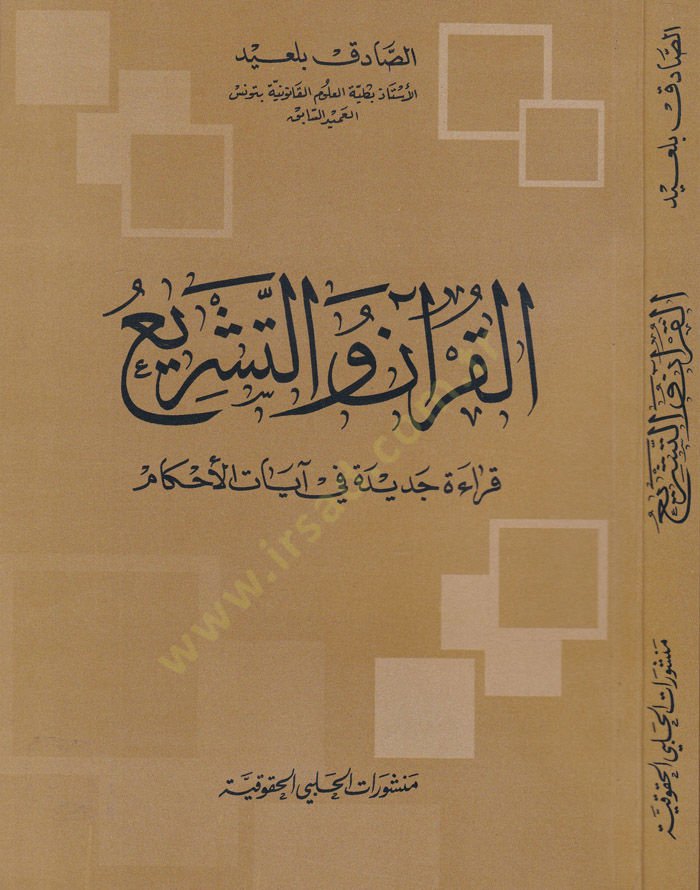 الصَّادق بلعيد
الأستاذ بكلية العلوم القانونيّة بتونس
العميد السّابق
القُرآن وَالتَّشْرِيعُ
قراءة جَديدة في آيات الأحكام
www.irsad.com.tr
مَنشورات الحلبي الحقوقيّة
الصَّادق بلعيد
القُرآن وَالتَّشْرِيعُ
مَنشورات الحلبي الحقوقيّة